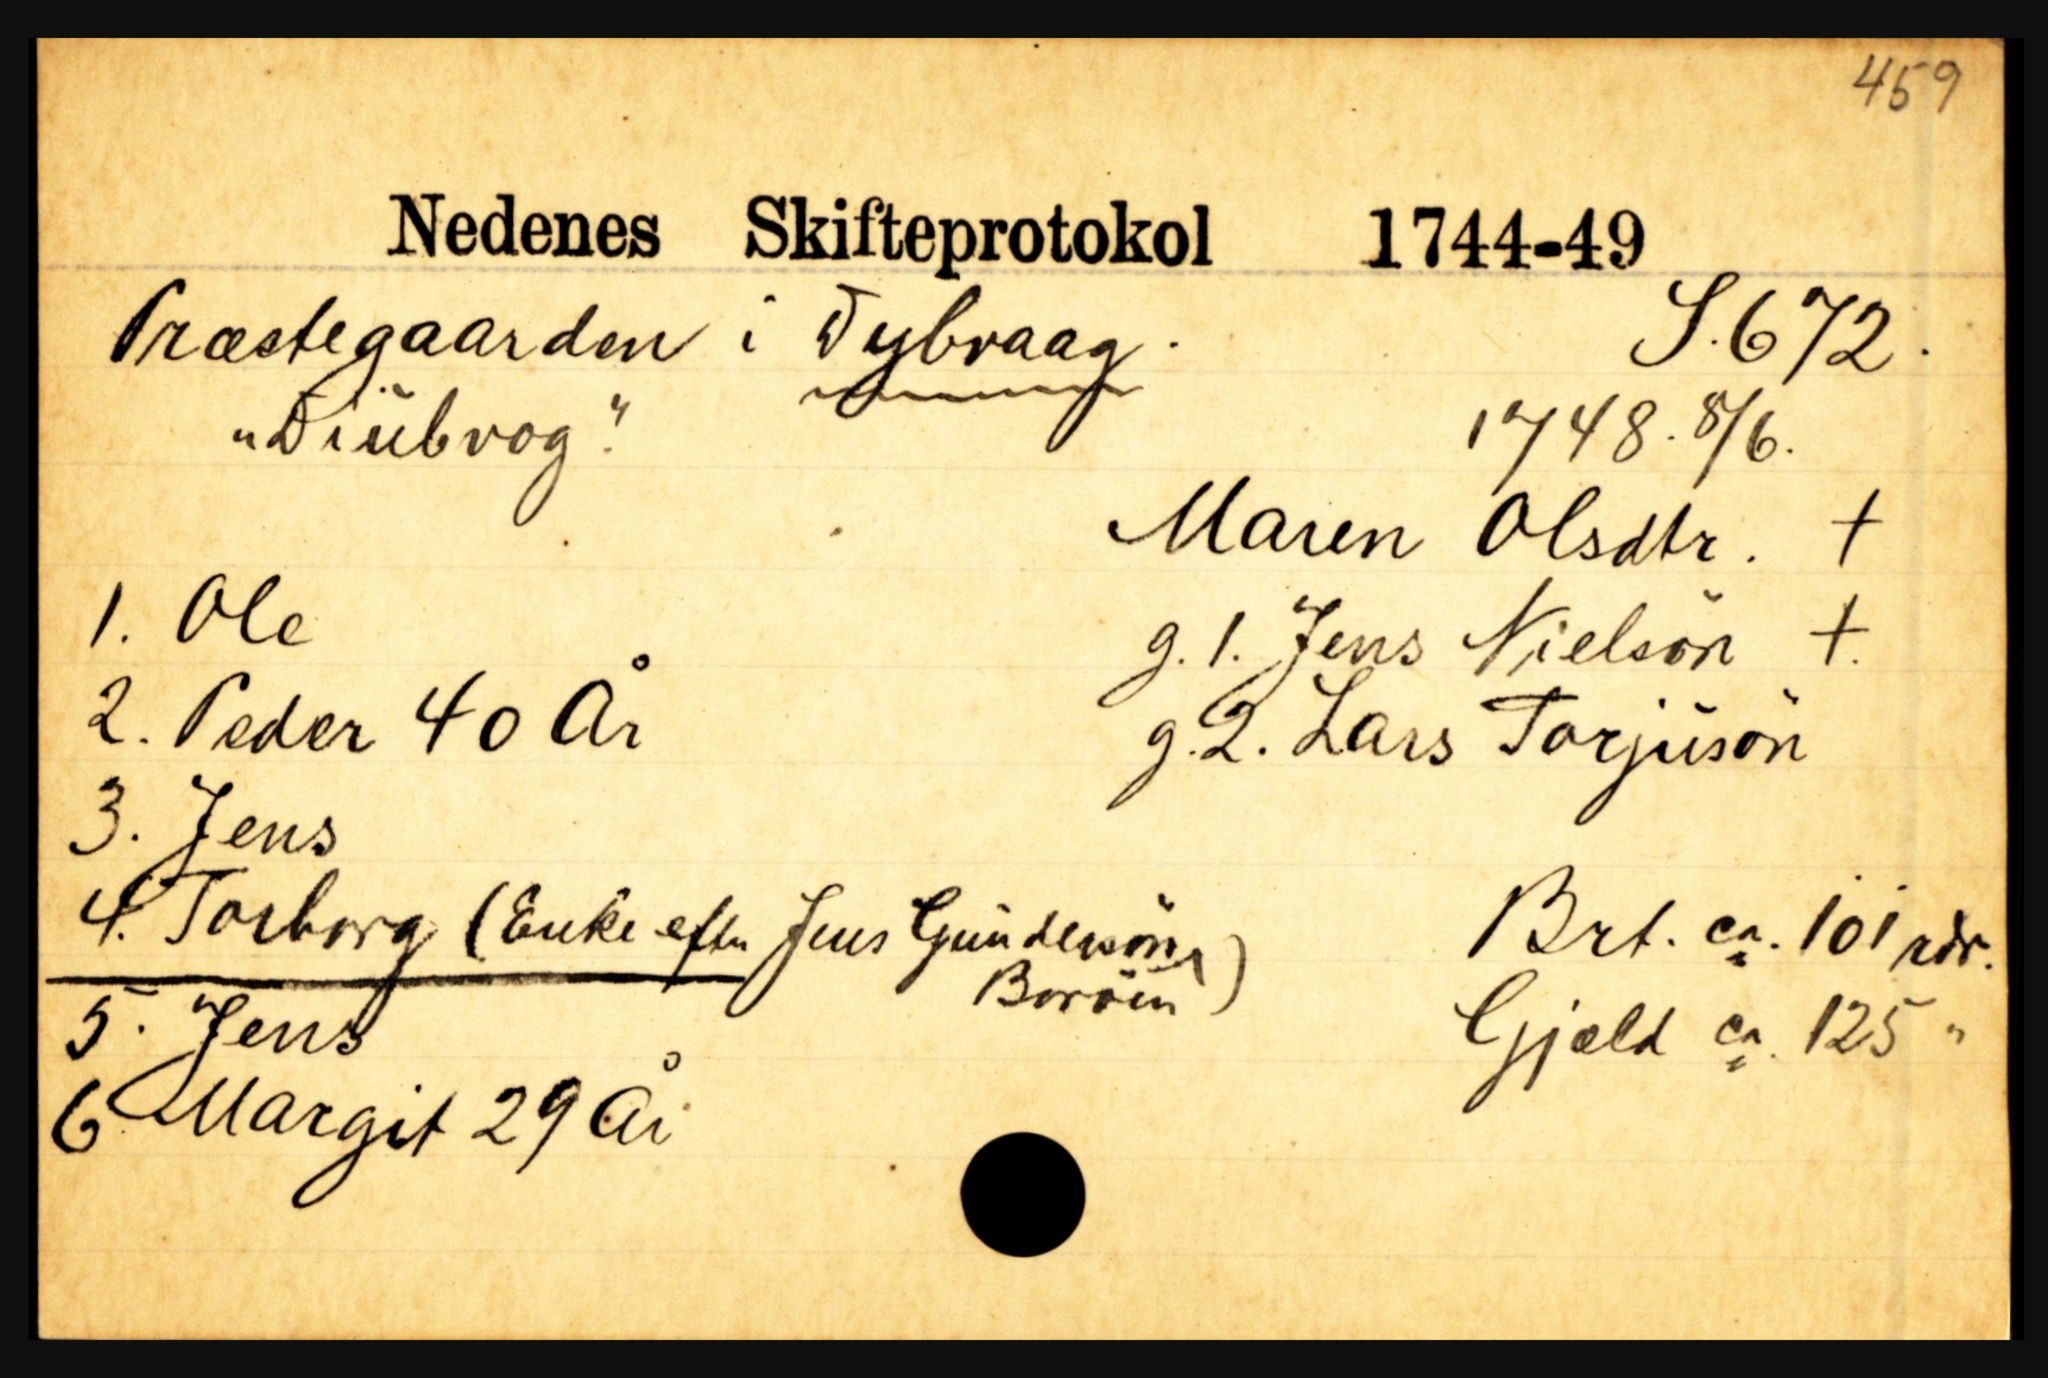 459
Nedenes Skifteprotokol 1744-49
Præstegaarden i Dybvaag. S. 672.
"Diübvog". 1748. 8/6.
Maren Olsdtr. +
1. Ole g. 1. Jens Nielsön +.
2. Peder 40 År g. 2. Lars Torjüsön
3. Jens
4. Torborg (Enke efter Jens Gündersön, Brt. ca. 101 rdr.
Boröen)
5. Jens Gjæld ca. 125 "
6. Margit 29 År